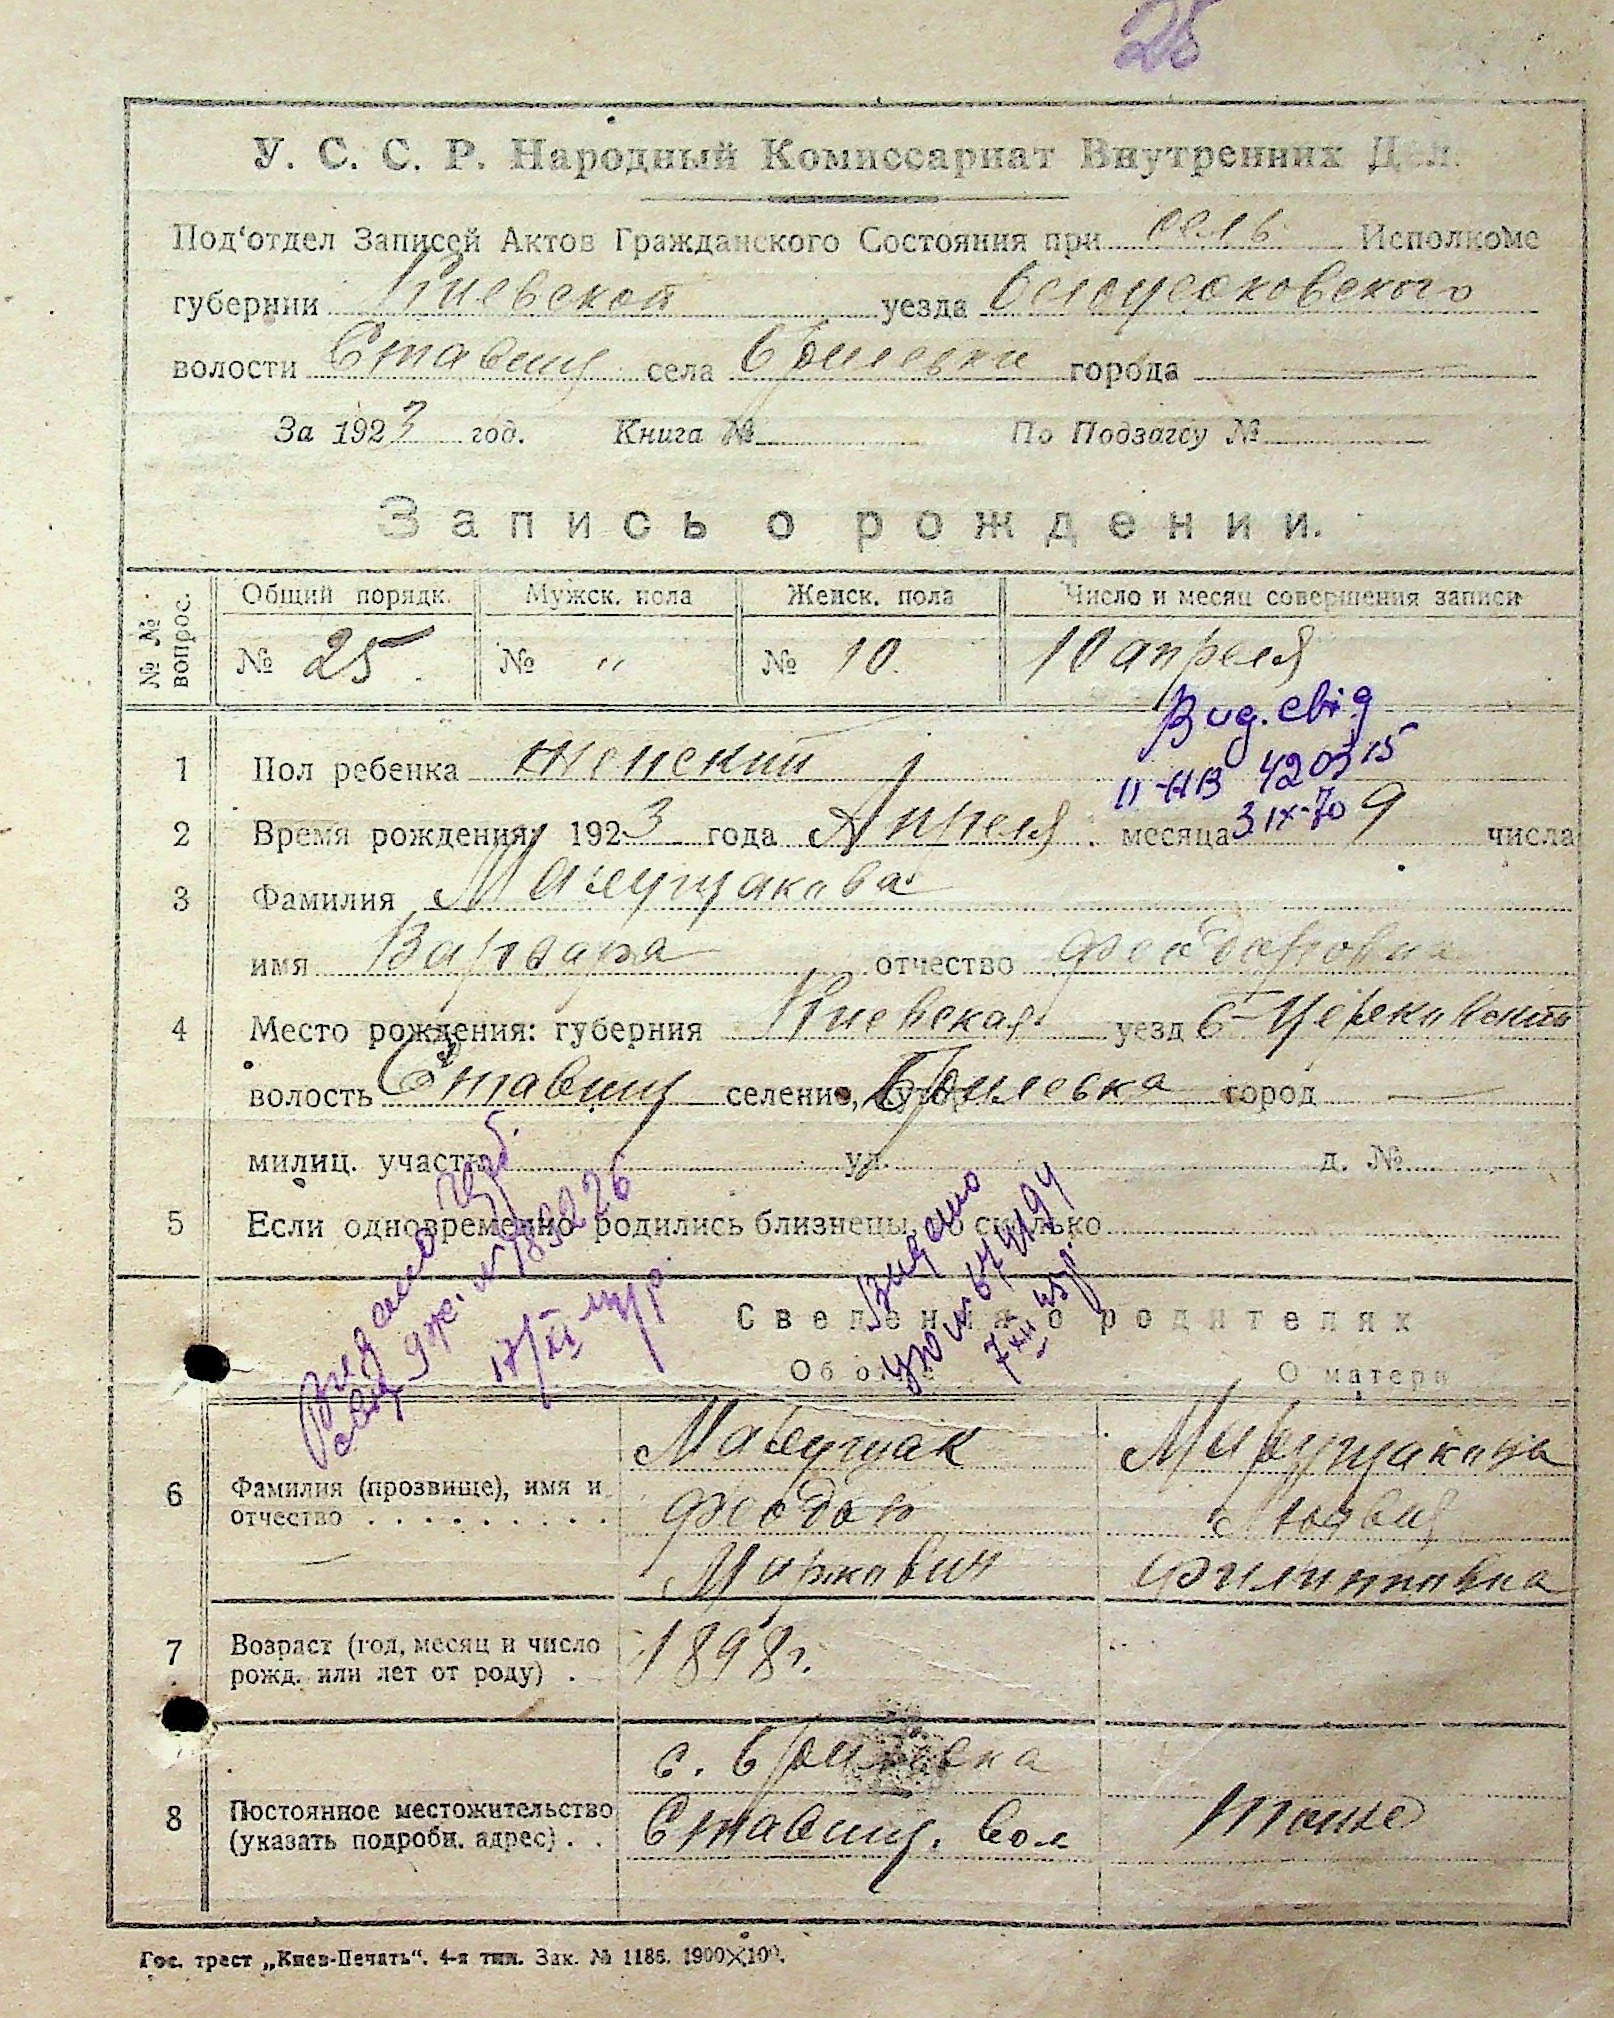 28
У. С. С. Р. Народный Комиссариат Внутренних Дел.
Под‘отдел Записей Актов Гражданского Состояния при сель Исполкоме
губернии Киевской уезда
волости Ставищ села города
За 1923 год. Книга № По Подзагсу №
Запись о рождении.
№ № вопрос. Общий порядк. Мужск. пола Женск. пола Число и месяц совершения записи
№ 25 № „ № 10. 10 апреля
Вид. свід
1 Пол ребенка женский
II-НВ 420315
2 Время рождения: 1923 года Апреля месяца 9 числа
3 IX-70
3 Фамилия
имя Варвара отчество Феодоровна
4 Место рождения: губерния Киевская уезд Б-Церковский
волость Ставищ селение, хутор Брилевка город —
милиц. участь ул. д. №
5 Если одновременно родились близнецы, то сколько
Выдано
№ 183226
17/XI
Выдано
7 XII 45 г.
Сведения о родителях
Об отце О матери
6 Фамилия (прозвище), имя и отчество
Феодор
Маркович Филипповна
7 Возраст (год, месяц и число рожд. или лет от роду) . 1898 г.
8 Постоянное местожительство (указать подробн. адрес) . .
с. Брилевка
Ставищ. вол тоже
Гос. трест „Киев-Печать“. 4-я тип. Зак. № 1186. 1900×100.